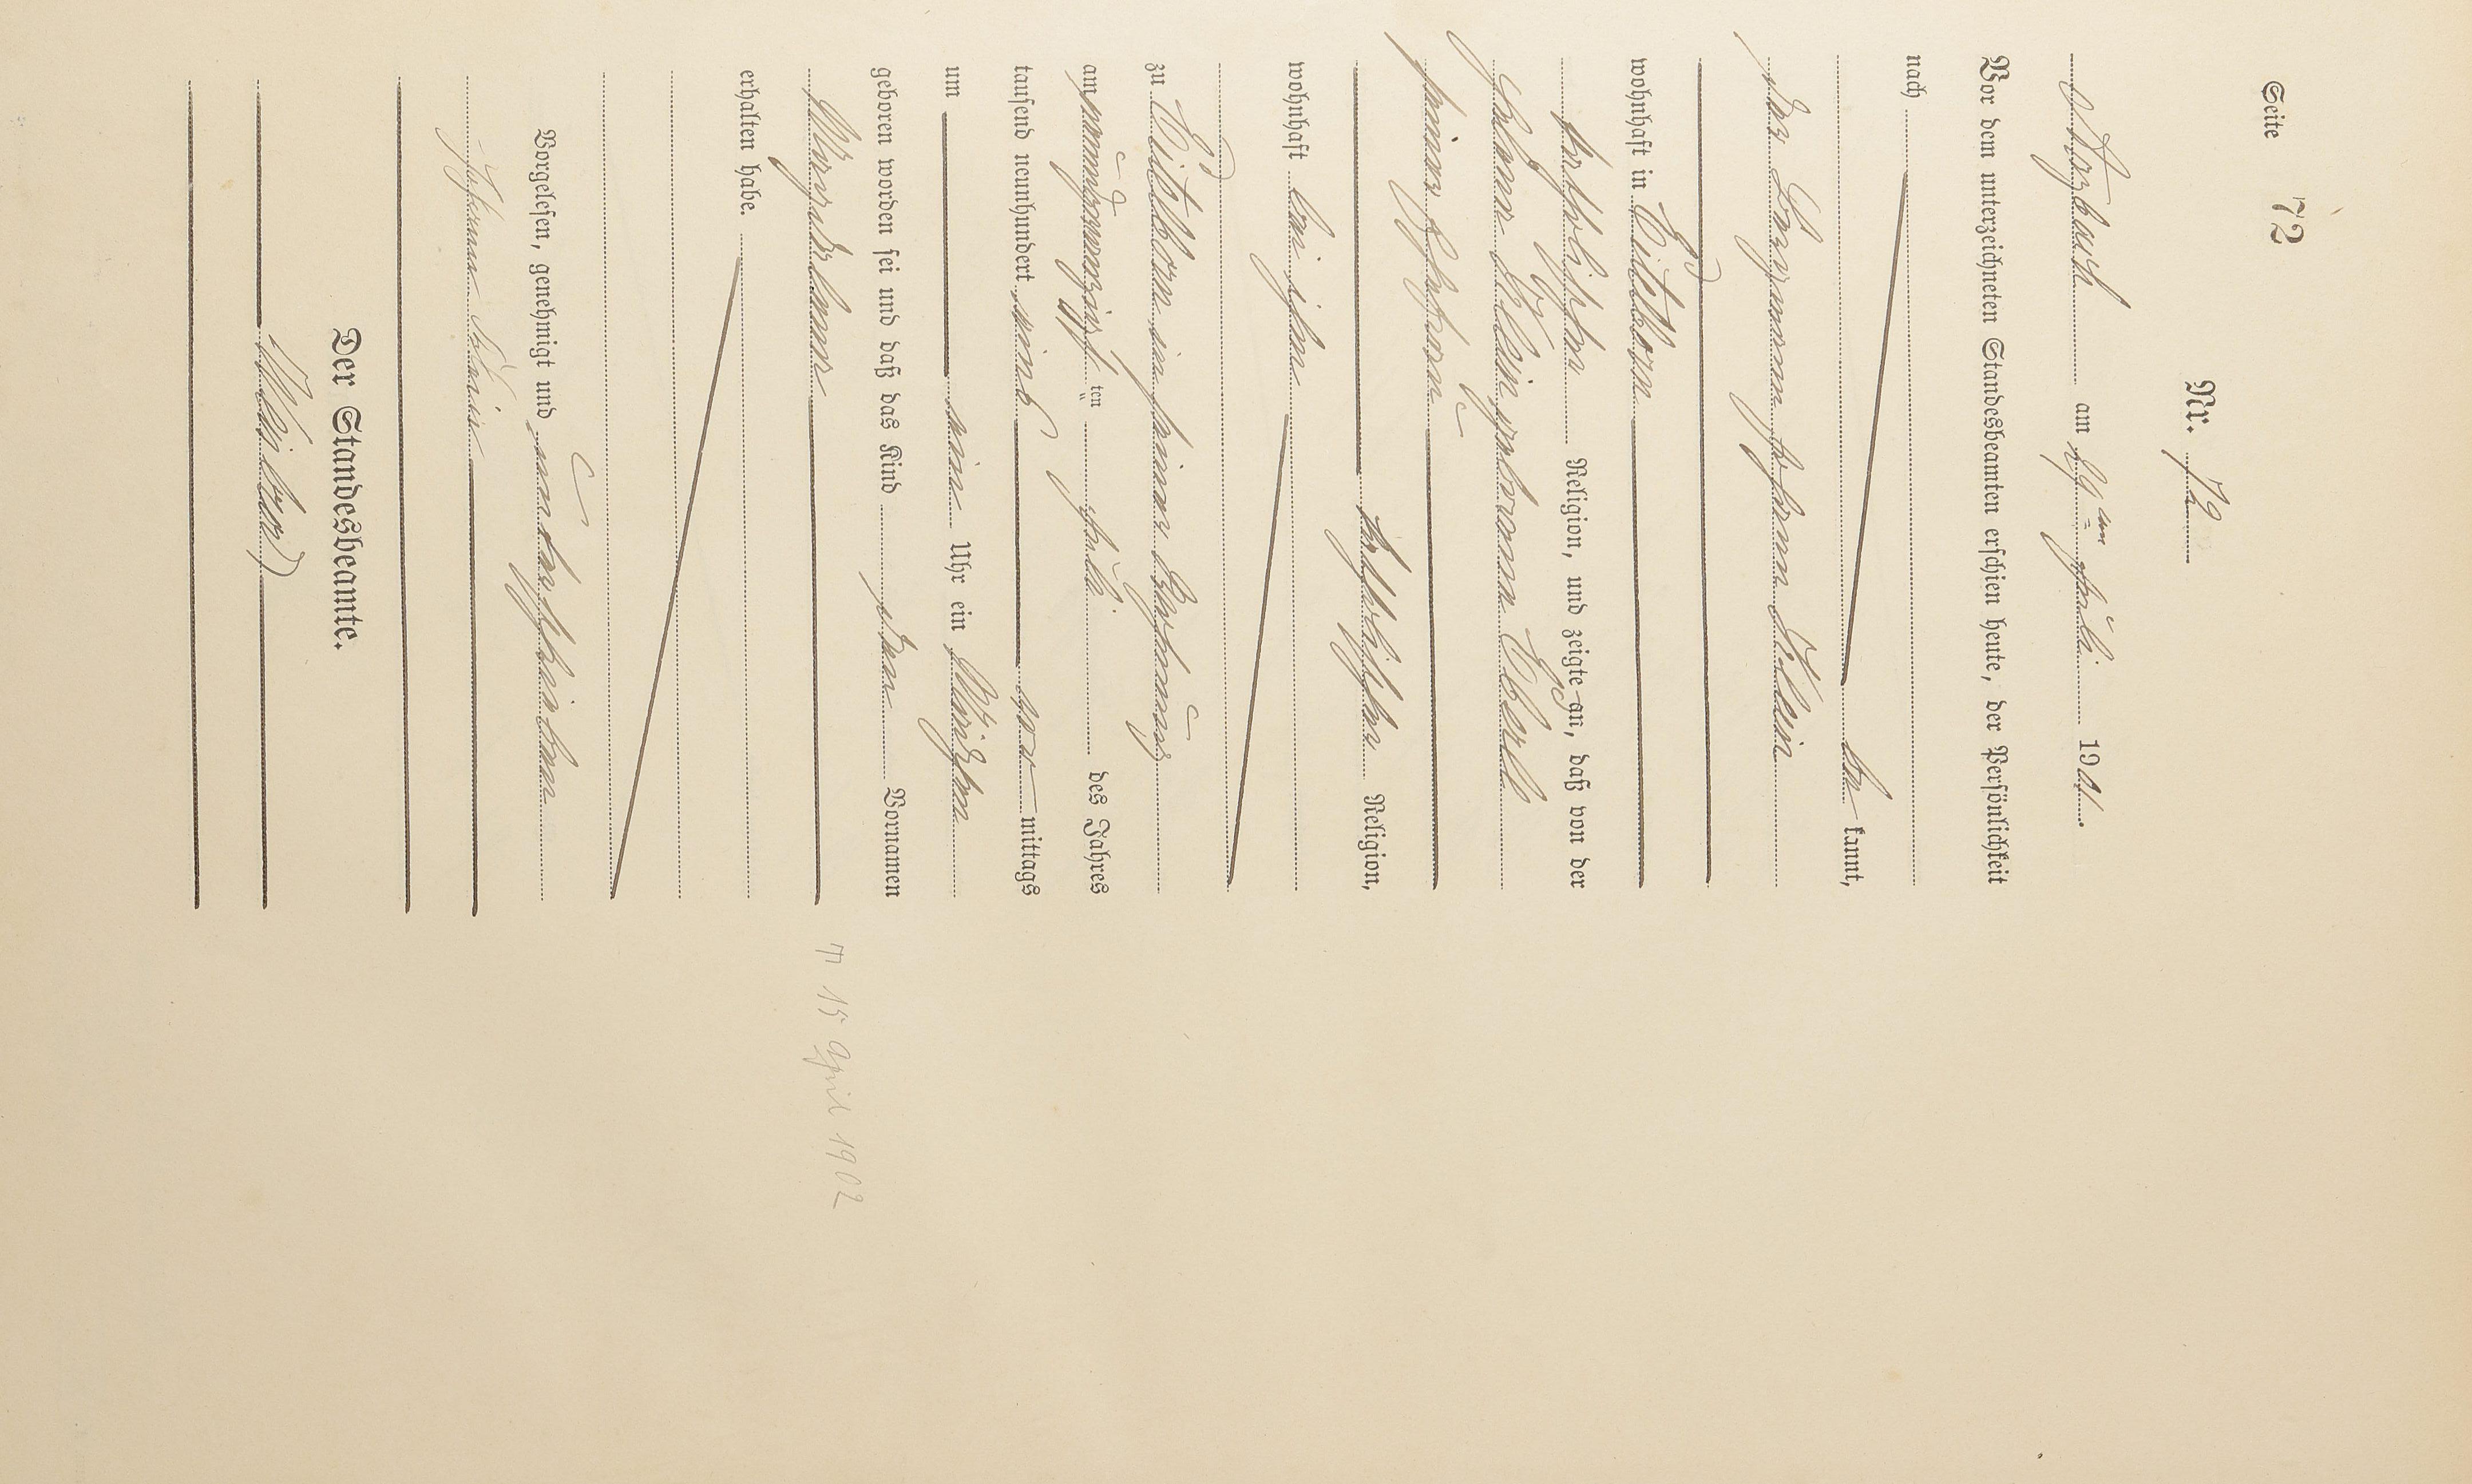 Seite 72
Nr. 72
am 29ten Juli 1901.
Vor dem unterzeichneten Standesbeamten erschien heute, der Persönlichkeit
nach
be kannt,
der Bergmann Johann Klein
wohnhaft in Eitelborn
katholischer Religion, und zeigte an, daß von der
Helene Klein geborenen Eberle
seiner Ehefrau
katholischer Religion,
wohnhaft bei ihm
zu Eitelborn in seiner Wohnung
am neunundzwanzigsten Juli des Jahres
tausend neunhundert eins vor mittags
um ein Uhr ein Mädchen
geboren worden sei und daß das Kind den Vornamen
Magdalena
erhalten habe.
Vorgelesen, genehmigt und unterschrieben
Johann Klein
Der Standesbeamte.
15 April 1902